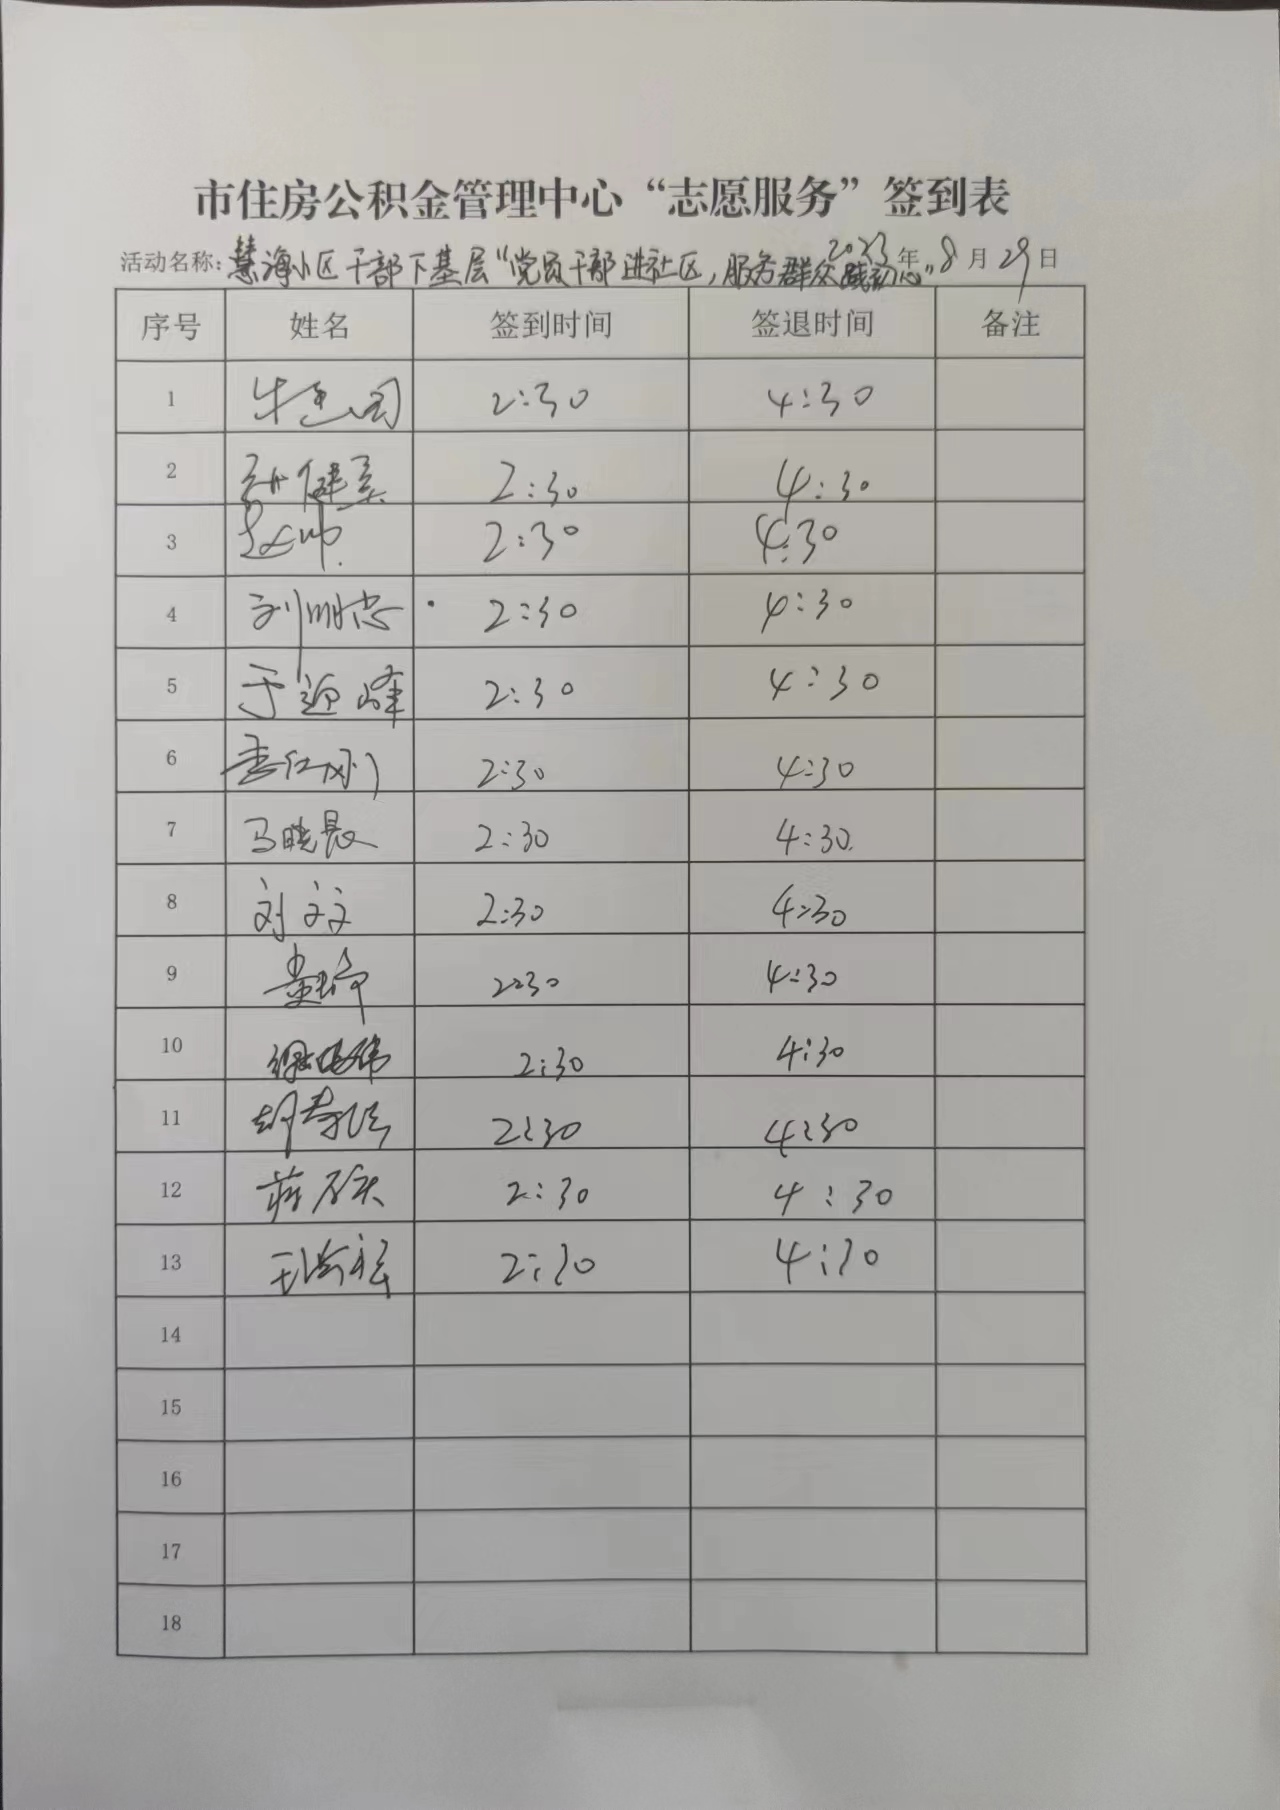 市住房公积金管理中心“志愿服务”签到表
活动名称：慧海小区干部下基层“党员干部进社区，服务群众践初心” 2023年8月29日
序号 姓名 签到时间 签退时间 备注
1 2:30 4:30
2 2:30 4:30
3 赵帅 2:30 4:30
4 刘明忠 2:30 4:30
5 于迎峰 2:30 4:30
6 2:30 4:30
7 马晓晨 2:30 4:30
8 刘文文 2:30 4:30
9 2:30 4:30
10 2:30 4:30
11 2:30 4:30
12 2:30 4:30
13 2:30 4:30
14
15
16
17
18